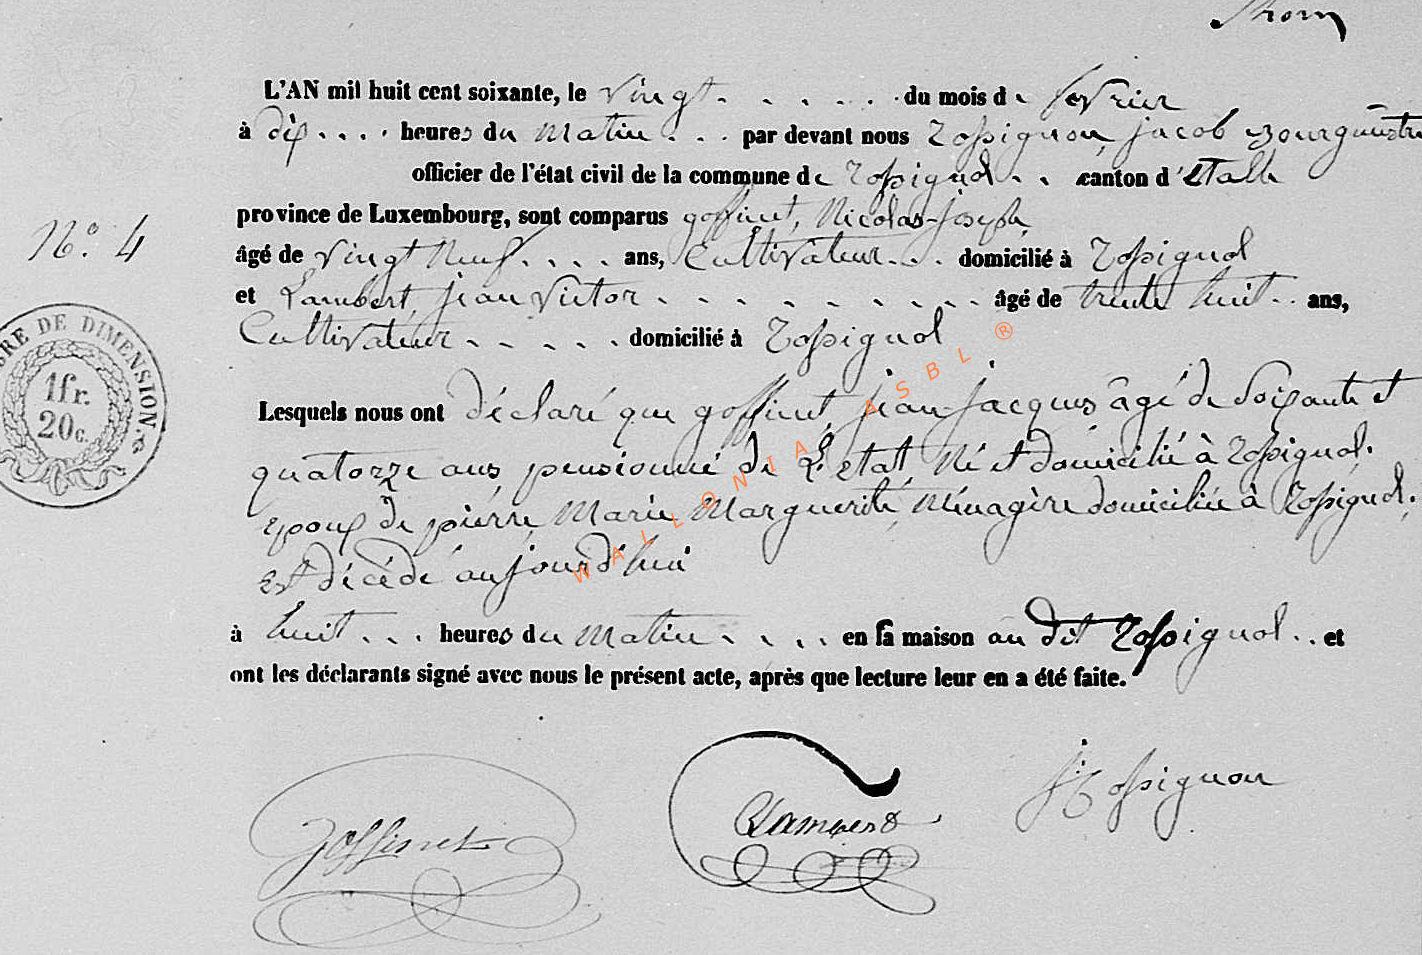 Thom
L'AN mil huit cent soixante, le vingt . . . . . . du mois de fevrier
à dix . . . . heures du matin . . . par devant nous Rossignon, jacob Bourgmestre
officier de l'état civil de la commune de Rossignol . . canton d'Etalle
province de Luxembourg, sont comparus goffinet, Nicolas-joseph
N.° 4
âgé de vingt neuf . . . . ans, Cultivateur . . . domicilié à Rossignol
et Lambert, jean Victor . . . . . . . . . âgé de trente huit . . ans,
Cultivateur . . . . . domicilié à Rossignol
TIMBRE DE DIMENSION.
1fr.
20c.
Lesquels nous ont déclaré que goffinet, jean-jacques âgé de Soixante et
quatorze ans pensionné de L'état, né et domicilié à Rossignol.
epoux de pierre, Marie Marguerite, Ménagère domiciliée à Rossignol,
est décédé aujourd'hui
à huit . . . heures du matin . . . . en sa maison au dit Rossignol . . et
ont les déclarants signé avec nous le présent acte, après que lecture leur en a été faite.
Goffinet
Lambert
J: Rossignon
WALLONIA ASBL ®